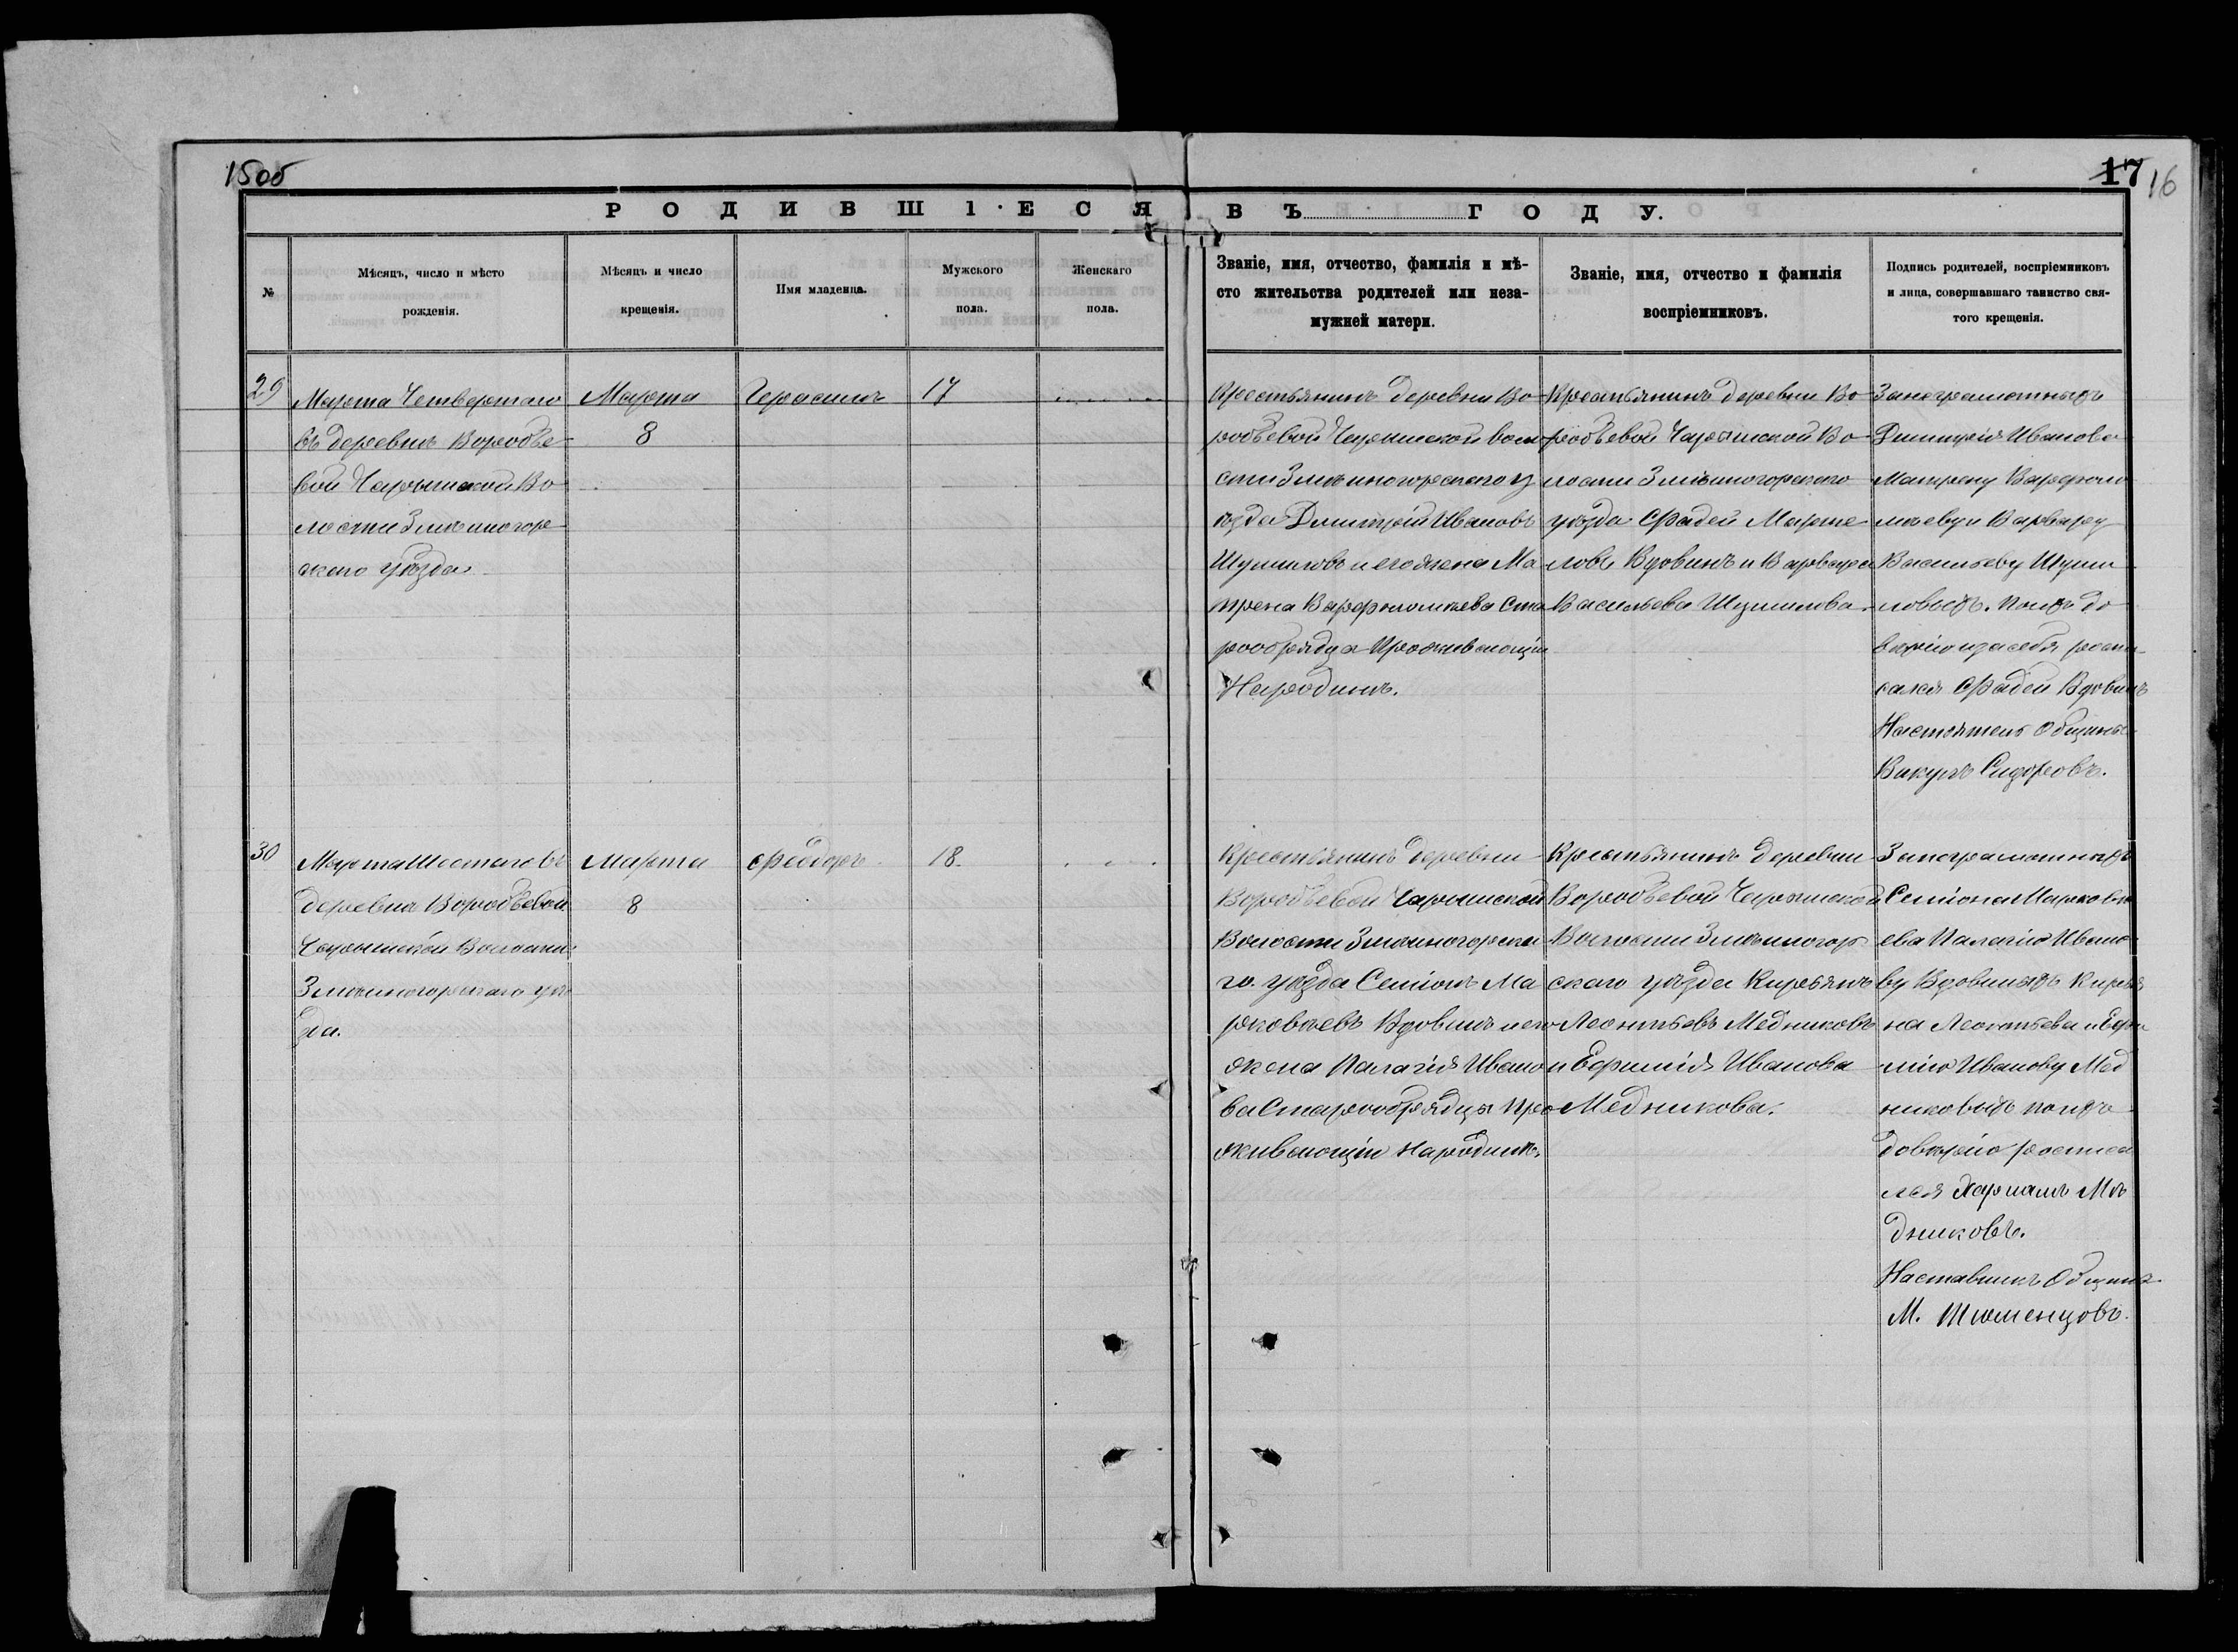 15об
17 16
РОДИВШІЕСЯ ВЪ ГОДУ.
№
Мѣсяцъ, число и мѣсто
рожденія.
Мѣсяцъ и число
крещенія.
Имя младенца.
Мужского
пола.
Женскаго
пола.
Званіе, имя, отчество, фамилія и мѣ-
сто жительства родителей или неза-
мужней матери.
Званіе, имя, отчество и фамилія
воспріемниковъ.
Подпись родителей, воспріемниковъ
и лица, совершавшаго таинство свя-
того крещенія.
29
Марта Четвертаго
въ деревнѣ Воробье
вой Чарышской Во
лости Змѣиногоре
скаго уѣзда
Марта
8
Герасимъ
17
Крестьянинъ деревни Во
робьевой Чарышской воло
сти Змѣиногорскаго у
ѣзда Димитрій Ивановъ
Шумиловъ и его жена Ма
трена Варфоломѣева Ста
рообрядца Проживающіи
На родинѣ.
Крестьянинъ деревни Во
робьевой Чарышской Во
лости Змѣиногорскаго
уѣзда Фадей Марте
ловъ Вдовинъ и Варвара
Васильева Шумилова.
За неграмотныхъ
Димитрія Иванова
Матрену Варфоло
мѣеву и Варвару
Васильеву Шуми
ловыхъ. по ихъ до
вѣрію и за себя роспи
сался Фадей Вдовинъ
Настоятель Общины
Вакулъ Сидоровъ.
30
Марта Шестаго въ
деревнѣ Воробьевой
Чарышской Волости
Змѣиногорскаго уѣ
зда.
Марта
8
Феодоръ
18.
Крестьянинъ деревни
Воробьевой Чарышской
Волости Змѣиногорска
го. уѣзда Семіонъ Ма
рковѣевъ Вдовинъ и его
жена Палагія Ивано
ва Старообрядцы про
живающіи на родинѣ.
Крестьянинъ деревни
Воробьевой Чарышской
Волости Змѣиногор
скаго уѣзда Кирьянъ
Леонтьевъ Медниковъ
и Ефимія Иванова
Медникова.
За неграмотныхъ
Семіона Марковѣ
ева Палагію Ивано
ву Вдовиныхъ Кирья
на Леонтьева и Ефи
мію Иванову Мед
никовыхъ по ихъ
довѣрію росписа
лся Харламъ Мѣ
дниковъ.
Наставникъ Общины
М. Тюменцовъ.